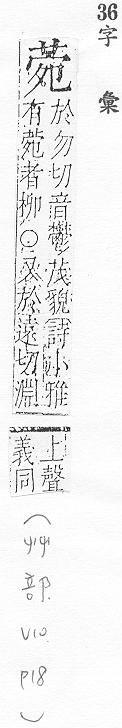 36字
彙
菀
於勿切音鬱茂貌詩小雅
有菀者柳○又於遠切淵
上聲
義同
(艸部 V10 P18)